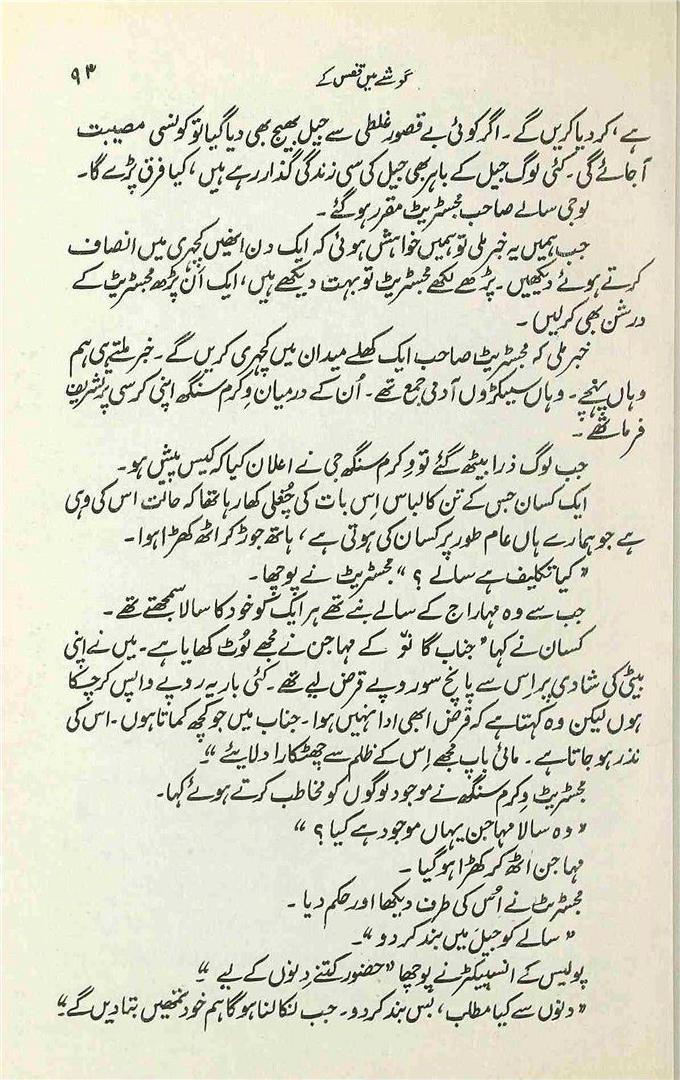 گوشے میں قفس کے
۹۳
ہے، کر دیا کریں گے۔ اگر کوئی بے قصور غلطی سے جیل بھیج بھی دیا گیا تو کونسی مصیبت
آ جائے گی۔ کئی لوگ جیل کے باہر بھی جیل کی سی زندگی گذار رہے ہیں، کیا فرق پڑے گا۔
لو جی سالے صاحب مجسٹریٹ مقرر ہو گئے۔
جب ہمیں یہ خبر ملی تو ہمیں خواہش ہوئی کہ ایک دن انھیں کچہری میں انصاف
کرتے ہوئے دیکھیں۔ پڑھے لکھے مجسٹریٹ تو بہت دیکھے ہیں، ایک اَن پڑھ مجسٹریٹ کے
درشن بھی کر لیں۔
خبر ملی کہ مجسٹریٹ صاحب ایک کھلے میدان میں کچہری کریں گے۔ خبر ملتے ہی ہم
وہاں پہنچے۔ وہاں سیکڑوں آدمی جمع تھے۔ اُن کے درمیان وِکرم سنگھ اپنی کرسی پر تشریف
فرما تھے۔
جب لوگ ذرا بیٹھ گئے تو وِکرم سنگھ جی نے اعلان کیا کہ کیس پیش ہو۔
ایک کسان جس کے تن کا لباس اِس بات کی چُغلی کھا رہا تھا کہ حالت اس کی وہی
ہے جو ہمارے ہاں عام طور پر کسان کی ہوتی ہے، ہاتھ جوڑ کر اٹھ کھڑا ہوا۔
”کیا تکلیف ہے سالے؟“ مجسٹریٹ نے پوچھا۔
جب سے وہ مہاراج کے سالے بنے تھے ہر ایک کو خود کا سالا سمجھتے تھے۔
کسان نے کہا ”جناب گانوٗ کے مہاجن نے مجھے لُوٹ کھایا ہے۔ میں نے اپنی
بیٹی کی شادی پر اِس سے پانچ سو روپے قرض لیے تھے۔ کئی بار یہ روپے واپس کر چکا
ہوں لیکن وہ کہتا ہے کہ قرض ابھی ادا نہیں ہوا۔ جناب میں جو کچھ کماتا ہوں۔ اس کی
نذر ہو جاتا ہے۔ مائی باپ مجھے اِس کے ظلم سے چھٹکارا دلایئے“۔
مجسٹریٹ وِکرم سنگھ نے موجود لوگوں کو مخاطب کرتے ہوئے کہا۔
”وہ سالا مہاجن یہاں موجود ہے کیا؟“
مہاجن اٹھ کر کھڑا ہو گیا۔
مجسٹریٹ نے اُس کی طرف دیکھا اور حکم دیا۔
”سالے کو جیل میں بند کر دو“۔
پولیس کے انسپیکٹر نے پوچھا ”حضور کتنے دِنوں کے لیے“۔
”دِنوں سے کیا مطلب، بس بند کر دو۔ جب نکالنا ہوگا ہم خود تمھیں بتا دیں گے“۔